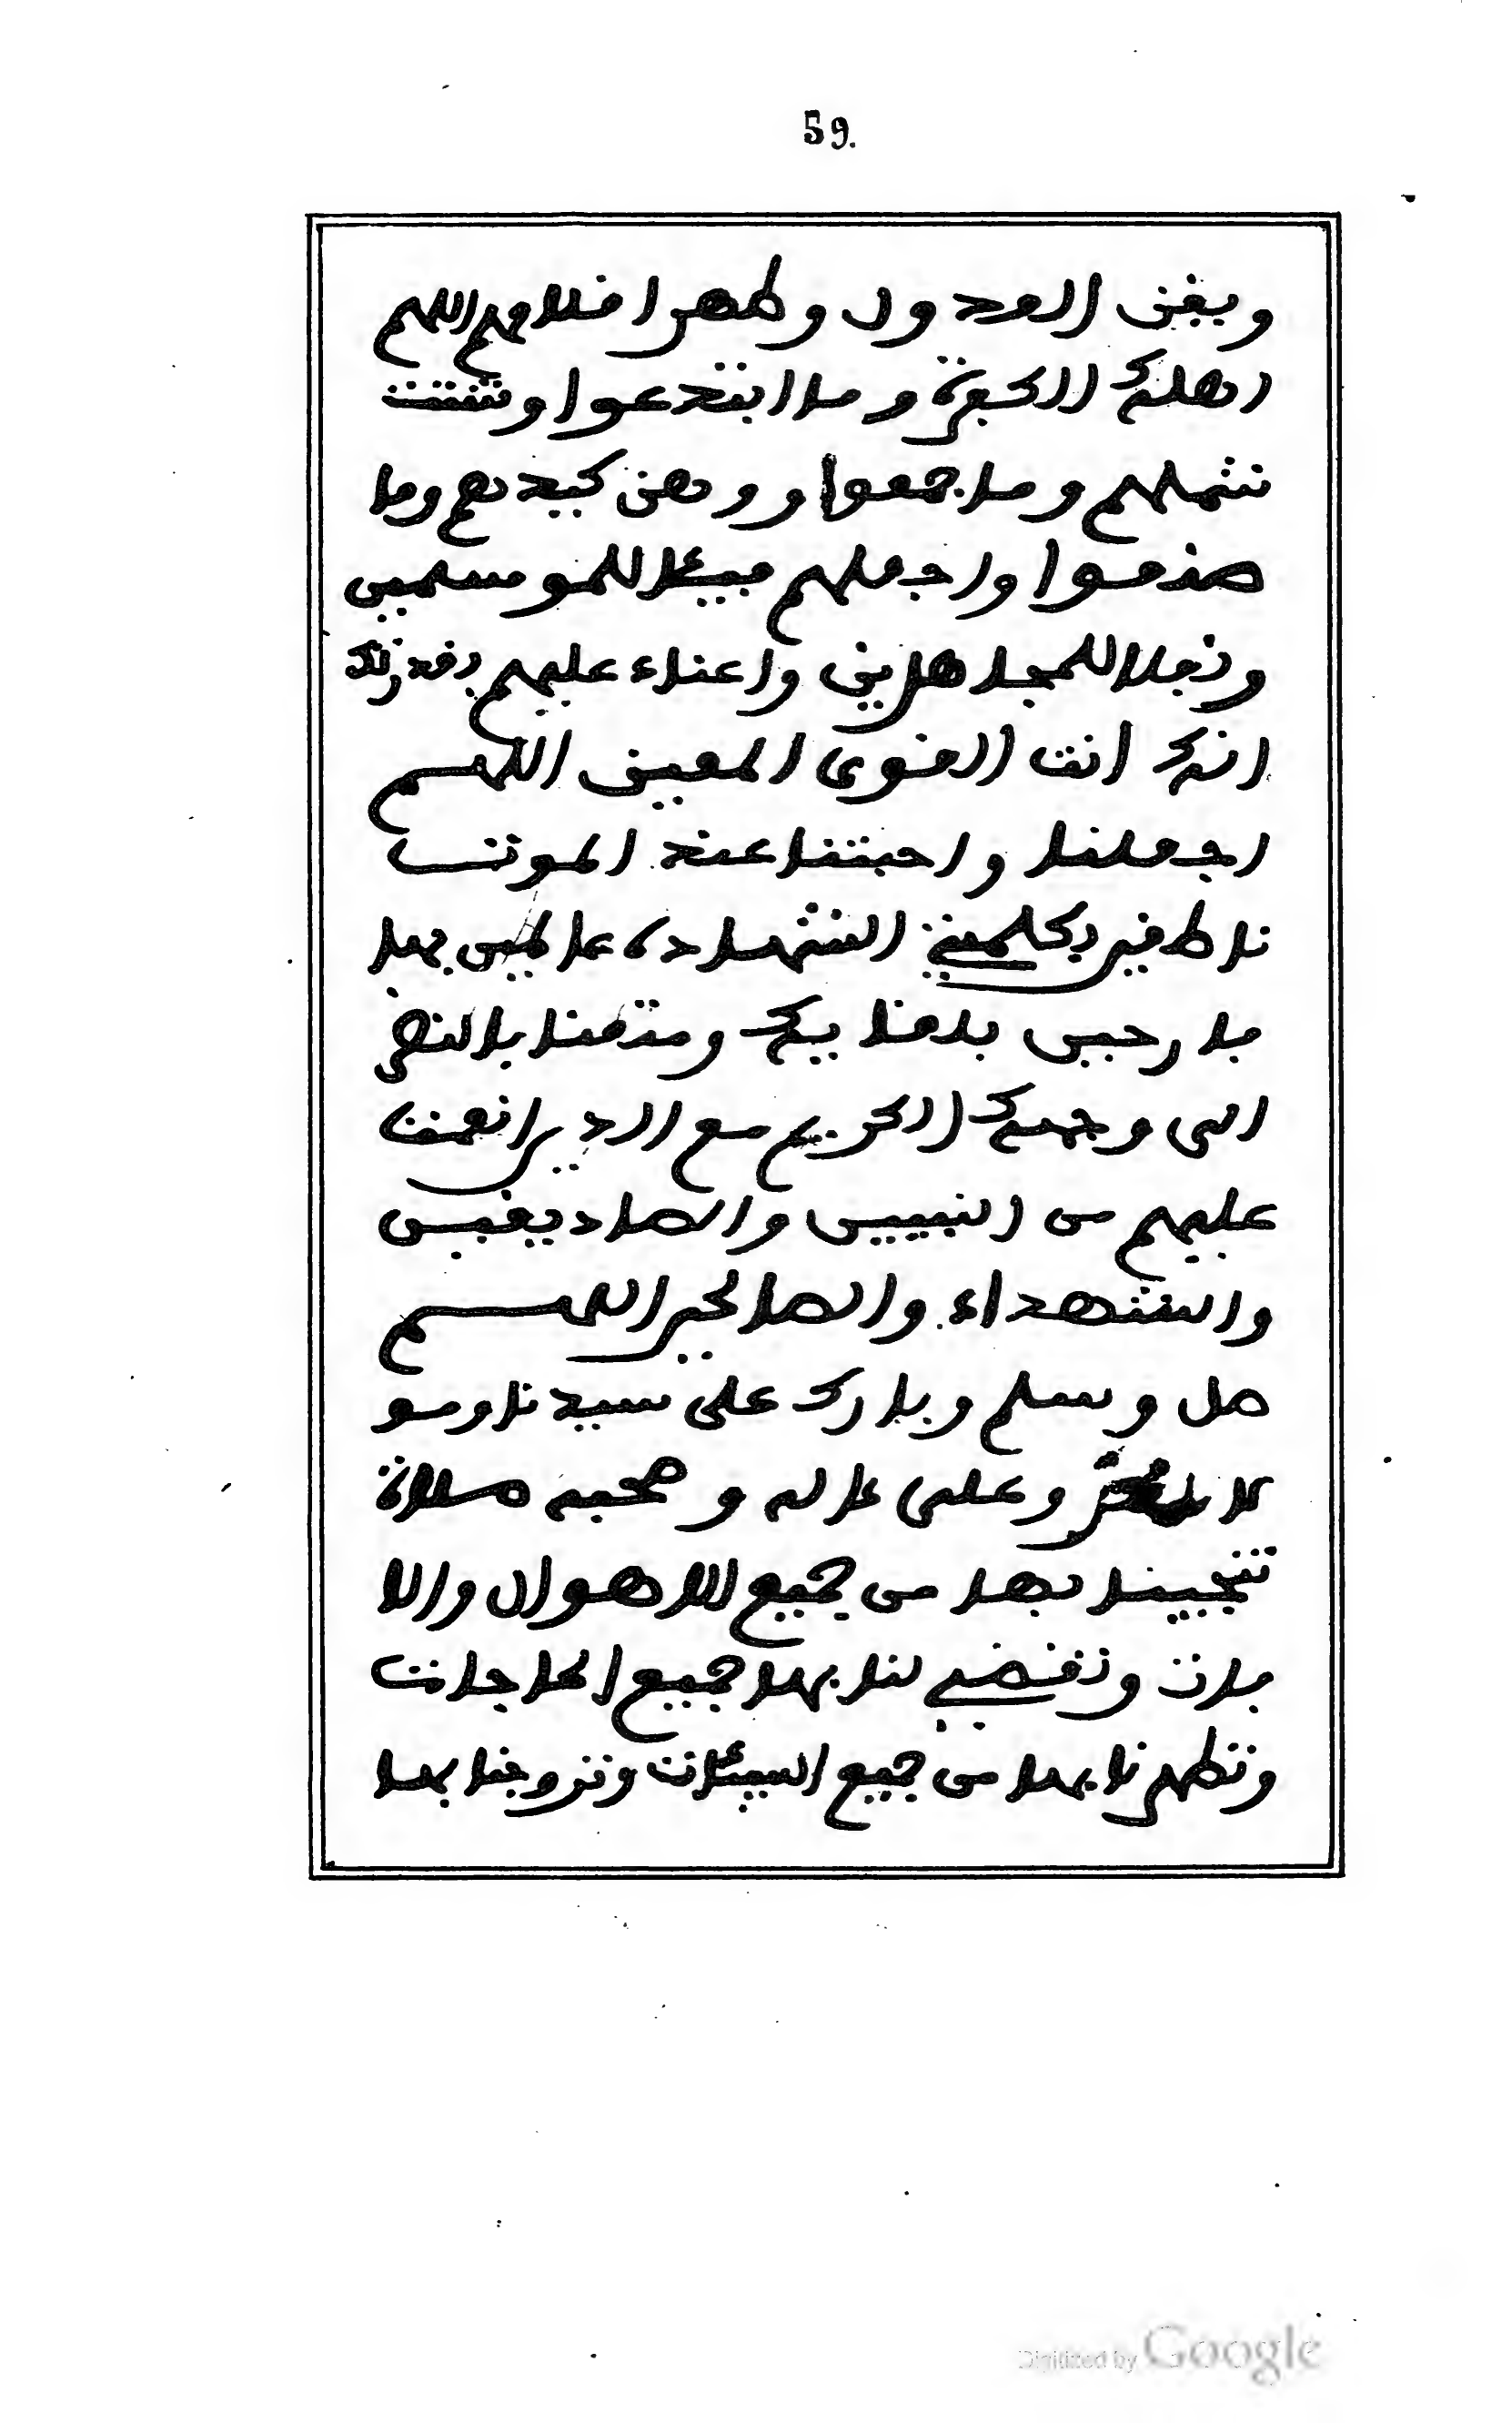 59.
ويفنى العدول وطهر افلامهم اللهم
اهلك الكفرة وما ابتدعوا وشتت
شملهم وما جمعوا ووهن كيدهم وما
صنعوا واجعلهم فيئا للمو سلمين
ونفلا للمجاهدين واعناء عليهم بقدرتك
انك انت القوى المعين اللهم
اجعلنا واحبتنا عند الموت
ناطقين بكلمتي الشهادة عالمين بها
فارحين بلقايك ومتعنا بالنظر
الى وجهك الكريم مع الذين انعمت
عليهم من النبيين والصاديقين
والشهداء والصالحين اللهم
صل وسلم وبارك على سيدنا ومو
لانا محمد وعلى ءاله وصحبه صلاة
تنجينا بها من جميع الاهوال والا
فات وتقضي لنا بها جميع الحاجات
وتطهرنا بها من جميع السيئات وتزوجنا بها
Digitized by Google